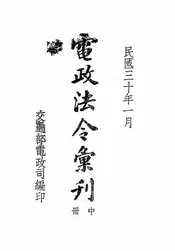 民國三十年一月
電政法令彙刊
中冊
交通部電政司編印